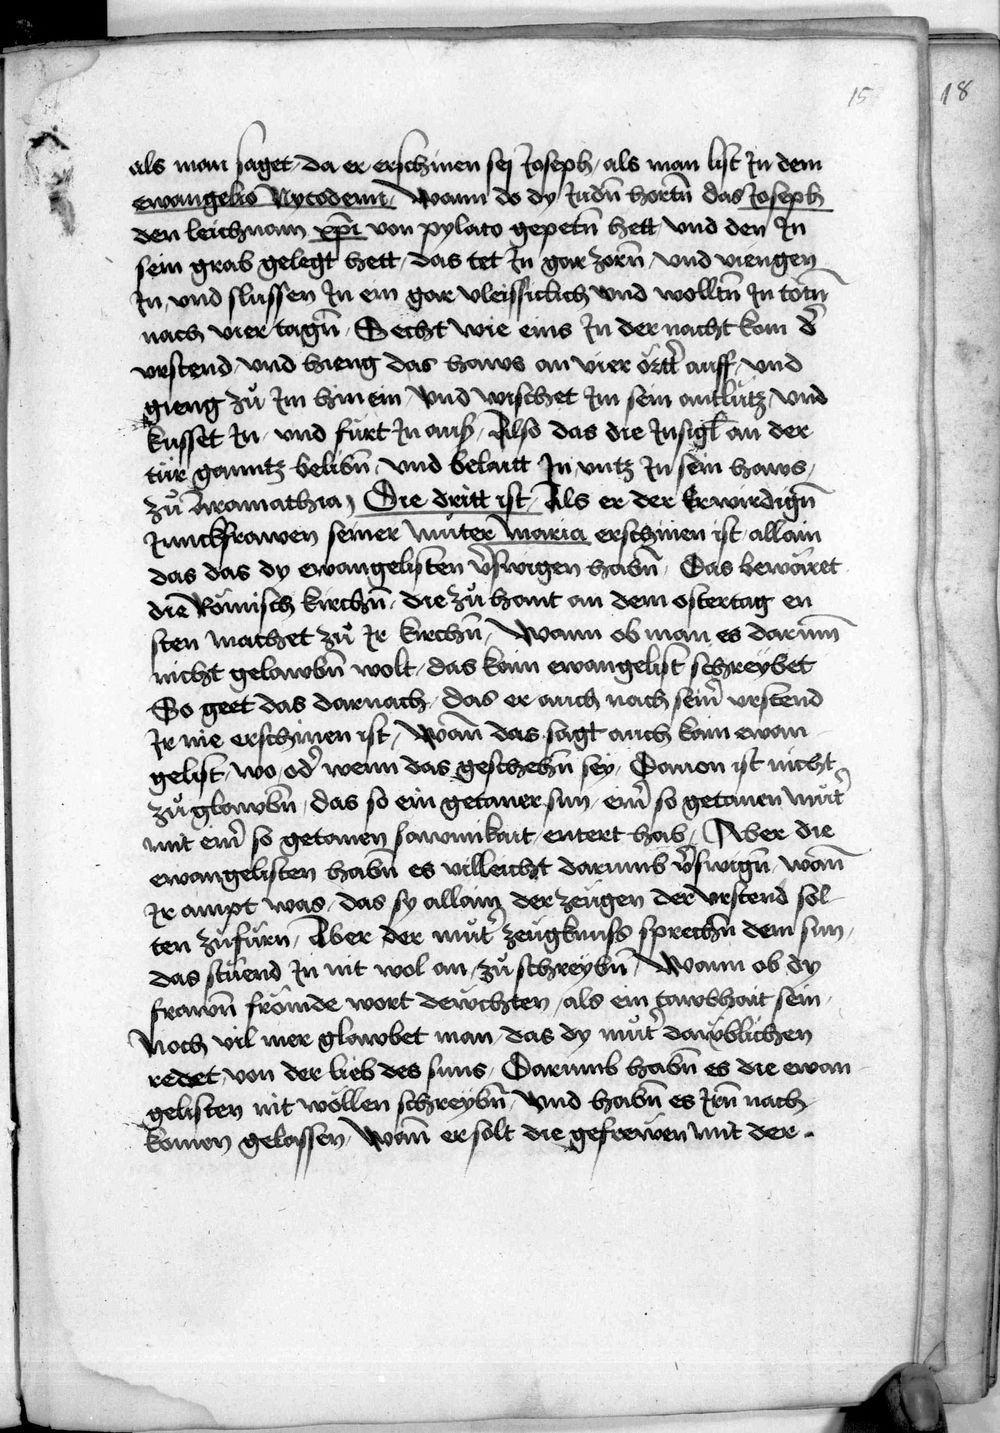 15
18
als man saget / da er erschinen sej Joseph / als man list Jn dem
ewangelio Nycodemi / Wann do dy Judn̄ hortn̄ das Joseph
den leichnam xp̄i von pylato gepetn̄ hett / und den Jn
sein grab gelegt hett / das tet Jn gar zorn̄ / und viengen
Jn / und slussen Jn ein gar vleissiclich und wolltn̄ Jn tötn̄
nach vier tagn̄ / Secht wie eins Jn der nacht kom d̄
vrstend / und hieng das haws an vier örtt̄ auff / und
gieng zů Jm hin ein / und wischet Jm sein antlütz / und
küsset Jn / und fürt Jn auß / Also das die Jnsigl̄ an der
tür ganntz belibn̄ / und belaitt Jn untz Jn sein haws /
zů Aramathia / Die dritt ist / Als er der Erwirdign̄
Junckfrawen seiner můter Maria erschinen ist / allain
das das dy ewangelisten v̄swigen habn̄ / Das bewäret
die Römisch kirchn̄ / die zů hant an dem ostertag en
sten machet zů Jr kirchn̄ / Wann ob man es darum̄
nicht gelawbn̄ wolt / das kain ewangelist schreÿbet
So geet das darnach / das er auch nach sein̄ vrstend
Jr nie erschinen ist / Wan̄ das sagt auch kain ewan
gelist / wo / od̄ wenn das geschehn̄ seÿ / Domon ist nicht
zů glawbn̄ / das so ein getaner sun / ein̄ so getanen můt̄
mit ein̄ so getanen sawmikait entert hab / Aber die
ewangelisten habn̄ es villeicht darumb v̄swign̄ / wan̄
Jr ampt was / das sy allain der zeügen der vrstend sol
ten zůfürn̄ / Aber der můt̄ zeügknuss sprechn̄ dem sun /
das stüend Jn nit wol an / zů schreÿbn̄ / Wann ob dy
frawn̄ frömde wort dewchten / als ein tawbhait sein /
Noch vil mer glawbet man / das dy můt̄ dawblichen
redet / von der lieb des suns / Darumb habn̄ es die ewan
gelisten nit wöllen schreÿbn̄ / und habn̄ es Jrn̄ nach
komen gelassen / Wan̄ er solt die gefrewen mit der